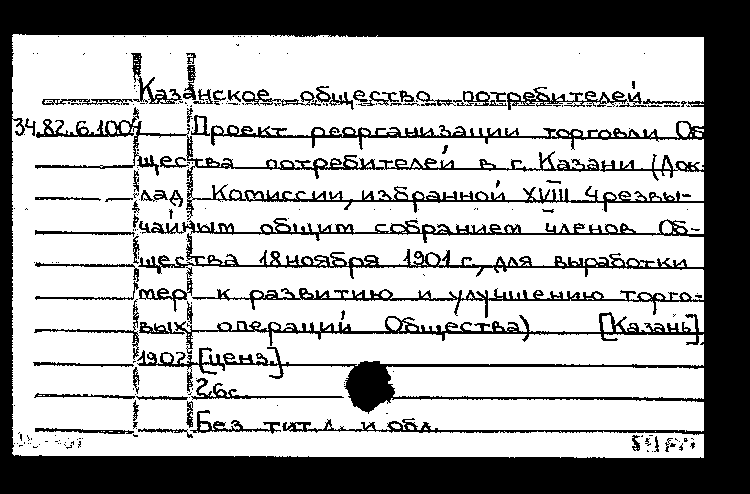 Казанское общество потребителей.
34.82.6.1004 Проект реорганизации торговли Об
щества потребителей в г. Казани (Док-
лад Комиссии, избранной XVIII Чрезвы-
чайным общим собранием членов Об-
щества 18 ноября 1901 г., для выработки
мер к развитию и улучшению торго-
вых операций Общества) [Казань],
1902 [ценз.].
26с.
Без тит. л. и обл.